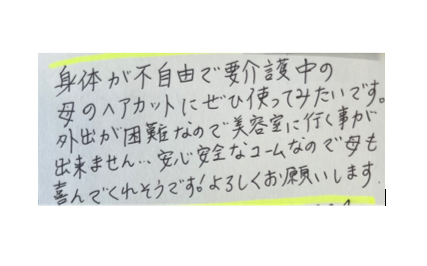 身体が不自由で要介護中の
母のヘアカットにぜひ使ってみたいです。
外出が困難なので美容室に行く事が
出来ません...安心安全なコームなので母も
喜んでくれそうです!よろしくお願いします.